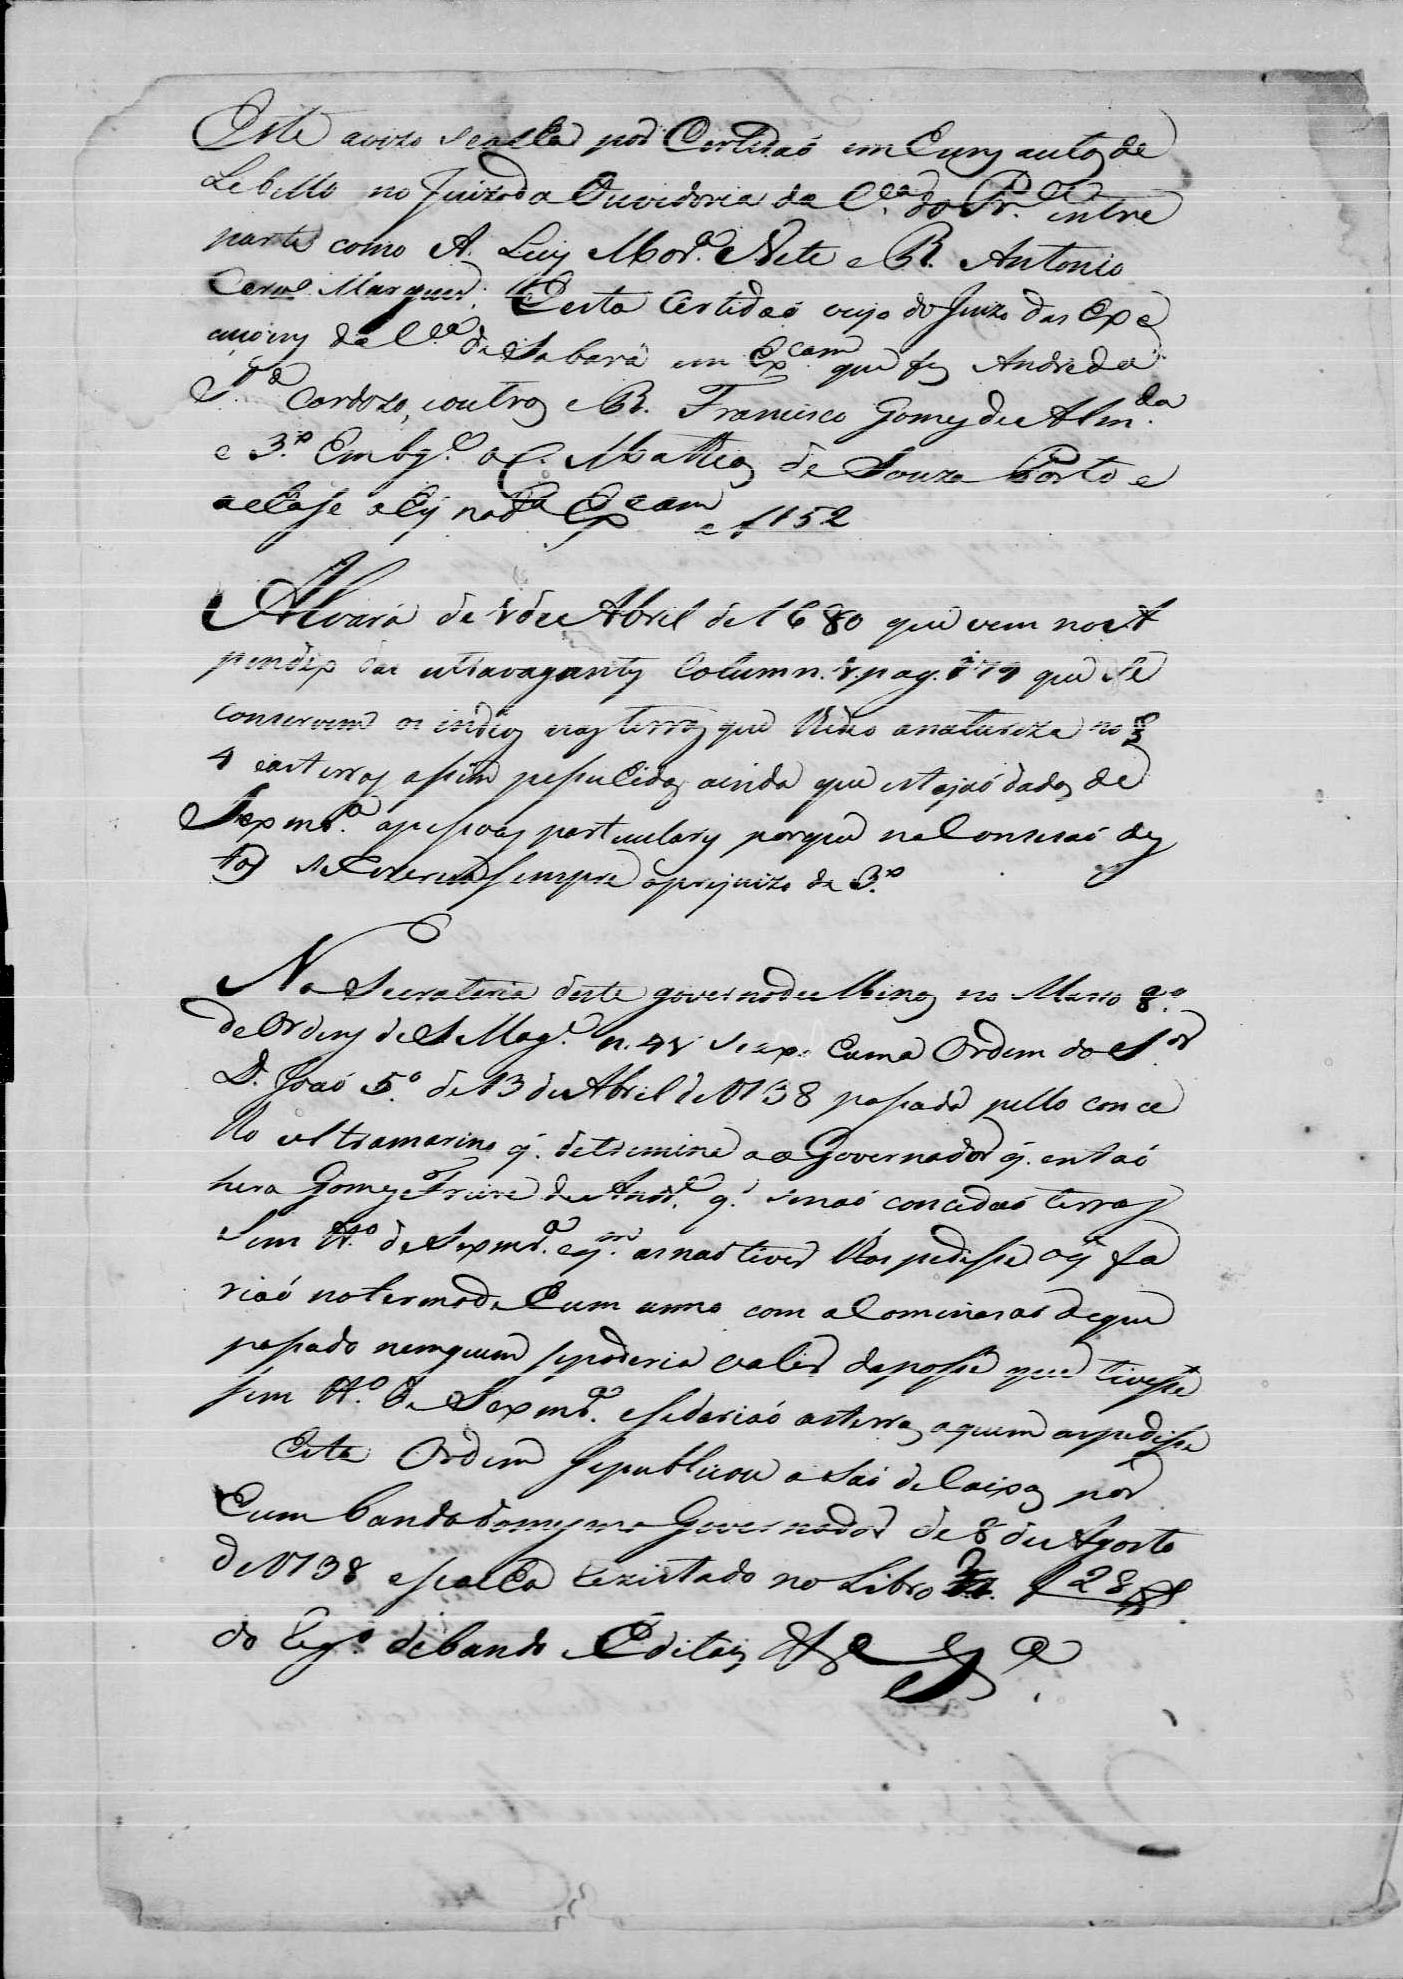 Este avizo se acha por Certidaó em huns autos de
Libello no Juizo da Ouvidoria da C.ca do Pr. entre
partes como A. Luis Mor.ª Nete e R. Antonio
Carv.º Marques. Esta Certidaó veyo do Juizo das Exe
cuçoens da C.ca de Sabará em Ex.cam que fes Andre da
S.ª Cardozo, contra o R. Francisco Gomes de Alm.da
e 3.º Embg.e o C. Mathias de Souza Porto e
achase a hy na d.ª Ex.cam a f 152
Alvará de 1 de Abril de 1680 que vem no A
pendix das extravagantes Column. 1. pag. que se
conservem os indios nas terras que lhe deo a natureza no §
4 e as terras assim pessuhidas ainda que estejaó dadas de
Sexmr.ª a pessoas particulares porque na Concesaó des
tas se rezerva sempre o prejuizo de 3.º
Na Secretaria deste governo de Minas no Masso 8.º
de Ordens de S Mag.e n. 41 se exp. huma Ordem do S.or
D. Joaó 5.º de 13 de Abril de 1738 passada pello conce
lho ultramarino q. detremina ao Governador q. entaó
hera Gomes Freire de Andr.e q. se naó concedaó terras
sem tt.º de Sexmr.ª e q.m as naó tiver lhas pedisse o q fa
riaó no termo de hum anno com a Cominasaó de que
passado nemguem se poderia valer da posse que tivesse
sem tt.º de Sexmr.ª e se dariaó as terras a quem as pedisse
Esta Ordem se publicou a Saó de Caixas por
hum bando do mesmo Governador de 8 de Agosto
de 1738 e se acha rezistado no Libro f 28
do Reg.º de bandos e Editais